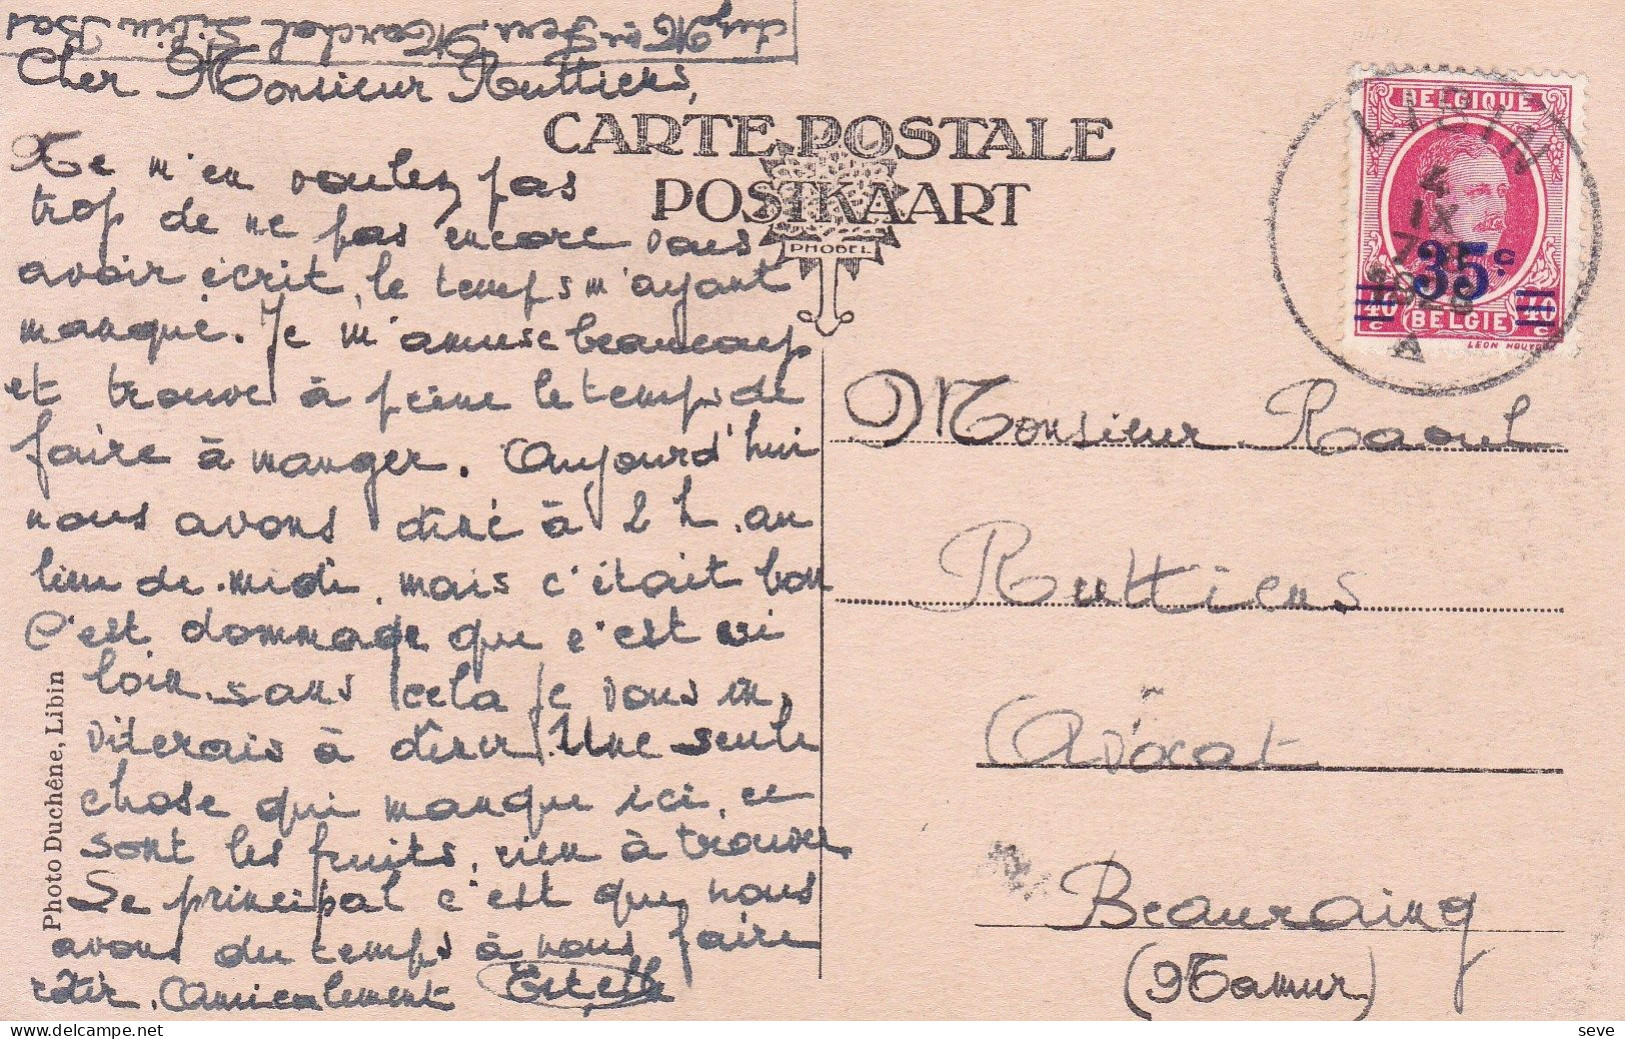 chez Mr Fern. Marchal Libin Bas
Cher Monsieur Ruttiens,
Ne m'en voulez pas
trop de ne pas encore vous
avoir écrit, le temps m'ayant
manqué. Je m'amuse beaucoup
et trouve à peine le temps de
faire à manger. Aujourd'hui
nous avons diné à 2 h. au
lieu de midi, mais c'était bon
C'est dommage que c'est si
loin. sans cela je vous in
viterais à diner. Une seule
chose qui manque ici, ce
sont les fruits, rien à trouver
Le principal c'est que nous
avons du temps à nous faire
rôtir. Amicalement Estelle
Photo Duchêne, Libin
CARTE POSTALE
POSTKAART
PHOBEL
BELGIQUE
35 c
40 c 40 c
BELGIË
LEON HOUYOUX
LIBIN
4
IX
1928
A
Monsieur Raoul
Ruttiens
Avocat
Beauraing
(Namur)
seve